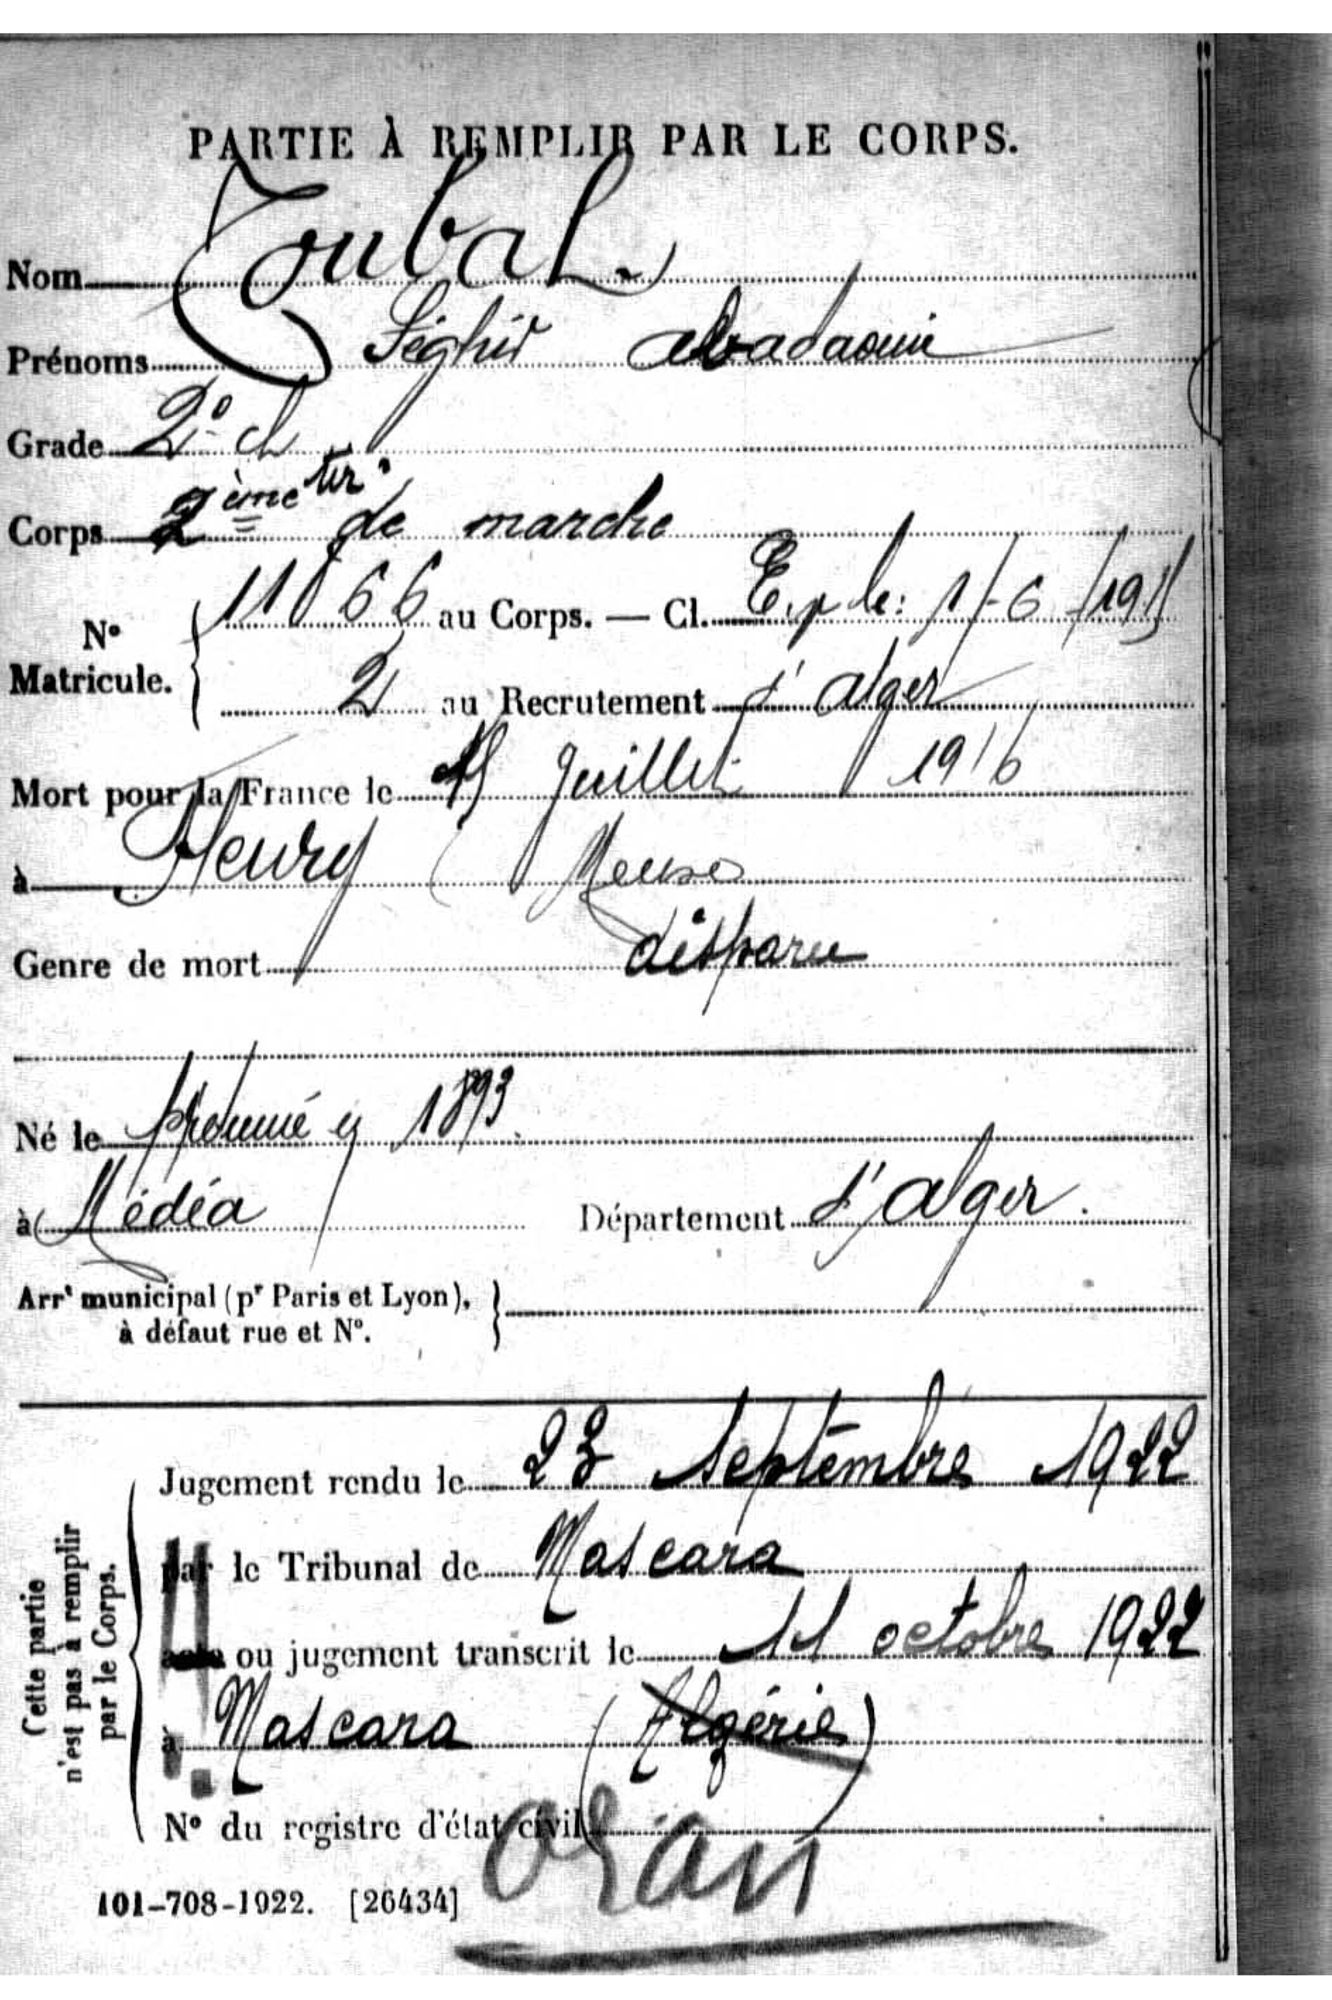 PARTIE À REMPLIR PAR LE CORPS.
Nom Toubal
Prénoms Séghir abadaouin
Grade 2e cl
Corps 2ème tir. de marche
N° Matricule. 11066 au Corps. — Cl. E.p le: 1-6-1915
2 au Recrutement d'alger
Mort pour la France le 15 Juillet 1916
à Fleury ( Meuse
Genre de mort disparu
Né le présumé en 1893
à Médéa Département d'alger.
Arrt municipal (pr Paris et Lyon),
à défaut rue et N°.
Cette partie
n'est pas à remplir
par le Corps.
Jugement rendu le 23 septembre 1922
par le Tribunal de Mascara
acte ou jugement transcrit le 11 octobre 1922
à Mascara (Algérie)
N° du registre d'état civil
Oran
101-708-1922. [26434]